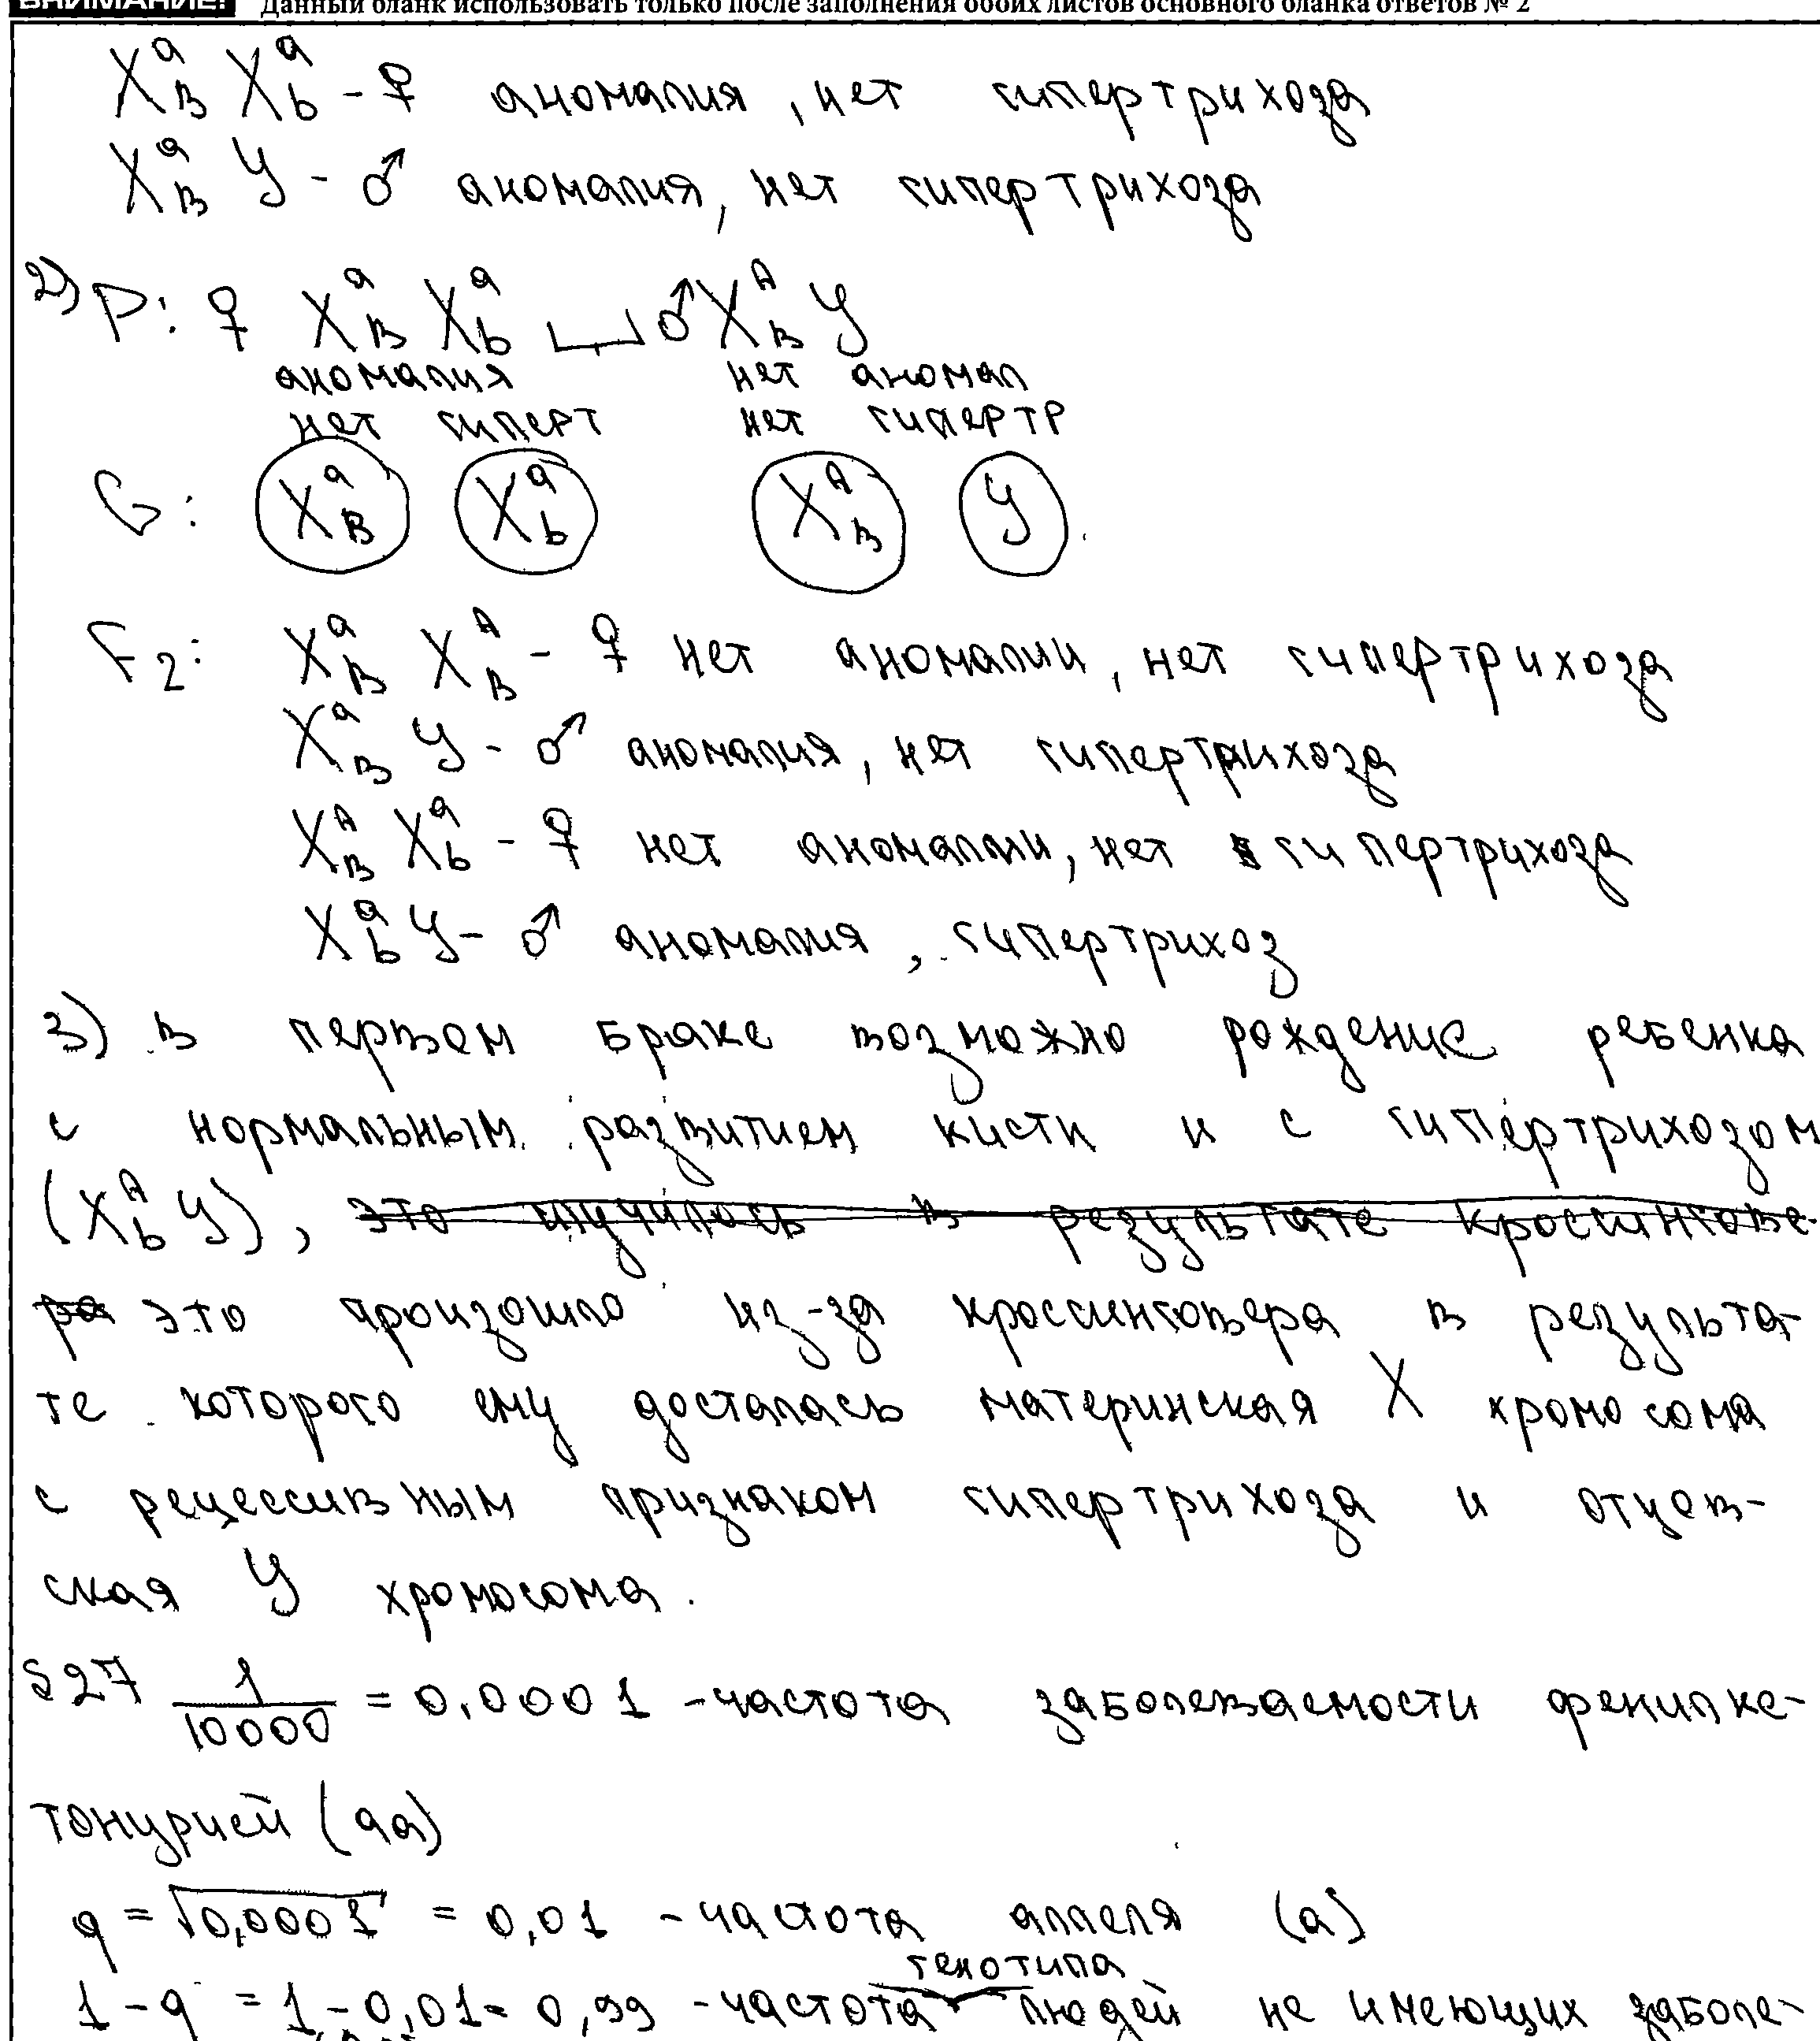 ВНИМАНИЕ! Данный бланк использовать только после заполнения обоих листов основного бланка ответов № 2
X^a_B X^a_b - ♀ аномалия, нет гипертрихоза
X^a_B У - ♂ аномалия, нет гипертрихоза
2) P: ♀ X^a_B X^a_b ♂ X^A_B У
аномалия нет аномал
нет гиперт нет гипертр
G: X^a_B X^a_b X^A_B У
F2: X^a_B X^A_B - ♀ нет аномалии, нет гипертрихоза
X^a_B У - ♂ аномалия, нет гипертрихоза
X^A_B X^a_b - ♀ нет аномалии, нет гипертрихоза
X^a_b У - ♂ аномалия, гипертрихоз
3) в первом браке возможно рождение ребенка
с нормальным развитием кисти и с гипертрихозом
(X^A_b У), это случилось в результате кроссингове-
ра это произошло из-за кроссинговера в результа-
те которого ему досталась материнская X хромосома
с рецессивным признаком гипертрихоза и отцов-
ская У хромосома.
S27 1/10000 = 0,0001 - частота заболеваемости фенилке-
тонурией (aa)
q = √0,0001 = 0,01 - частота аллеля (a)
генотипа
1 - q = 1 - 0,01 = 0,99 - частота людей не имеющих заболе-